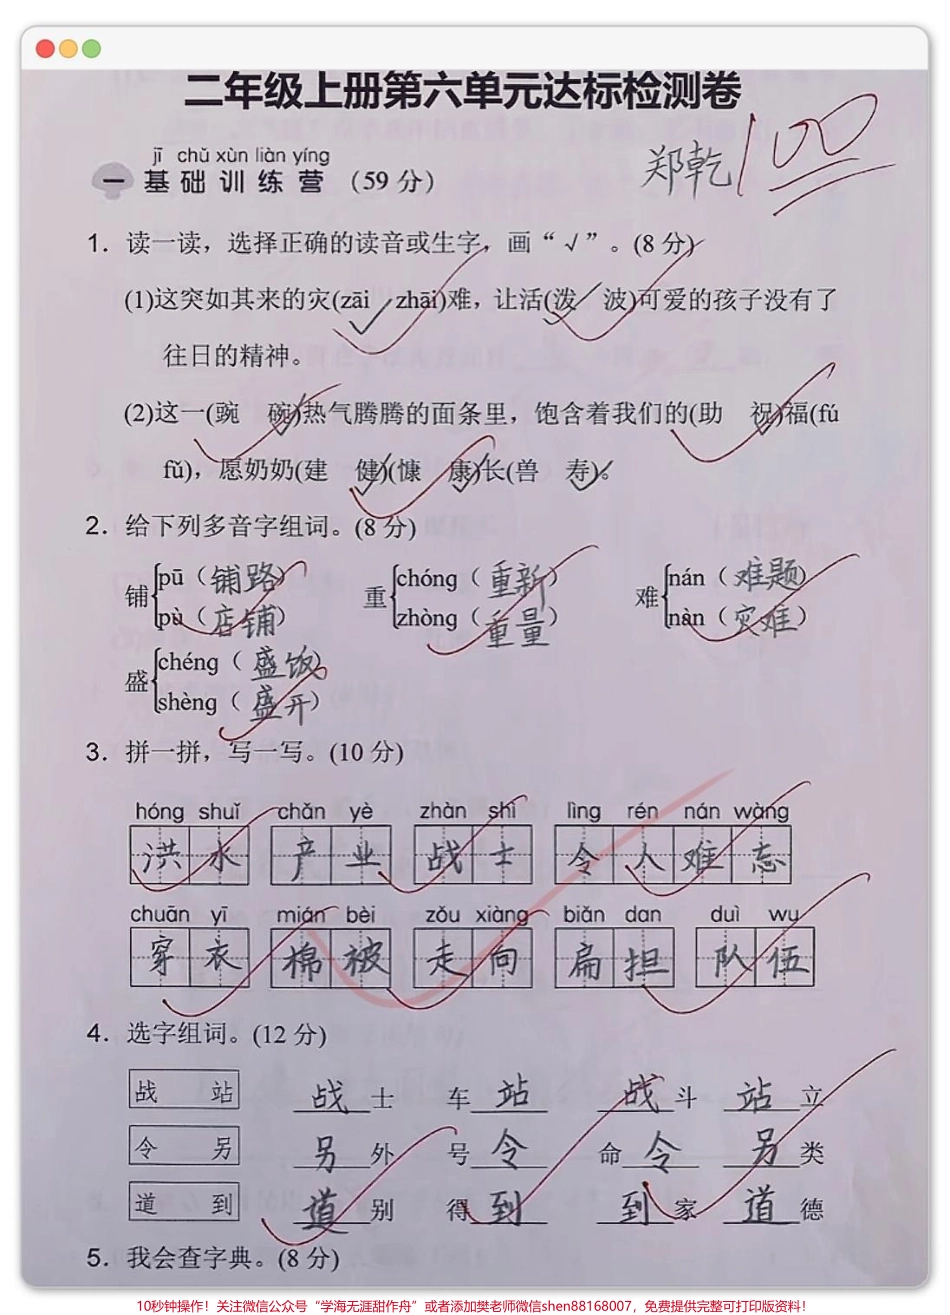 二年级上册第六单元达标检测卷
郑乾 100
jī chǔ xùn liàn yíng
一 基础训练营 (59分)
1. 读一读，选择正确的读音或生字，画“√”。(8分)
(1)这突如其来的灾(zāi √ zhāi)难，让活(泼√ 波)可爱的孩子没有了
往日的精神。
(2)这一(豌 碗√)热气腾腾的面条里，饱含着我们的(助 祝√)福(fú
fǔ)，愿奶奶(建 健√)(慷 康√)长(兽 寿√)。
2. 给下列多音字组词。(8分)
铺 pū（铺路） pù（店铺） 重 chóng（重新） zhòng（重量） 难 nán（难题） nàn（灾难）
盛 chéng（盛饭） shèng（盛开）
3. 拼一拼，写一写。(10分)
hóng shuǐ chǎn yè zhàn shì lìng rén nán wàng
洪水 产业 战士 令人难忘
chuān yī mián bèi zǒu xiàng biǎn dan duì wu
穿衣 棉被 走向 扁担 队伍
4. 选字组词。(12分)
战 站 战士 车站 战斗 站立
令 另 另外 号令 命令 另类
道 到 道别 得到 到家 道德
5. 我会查字典。(8分)
10秒钟操作！关注微信公众号“学海无涯甜作舟”或者添加樊老师微信shen88168007，免费提供完整可打印版资料！